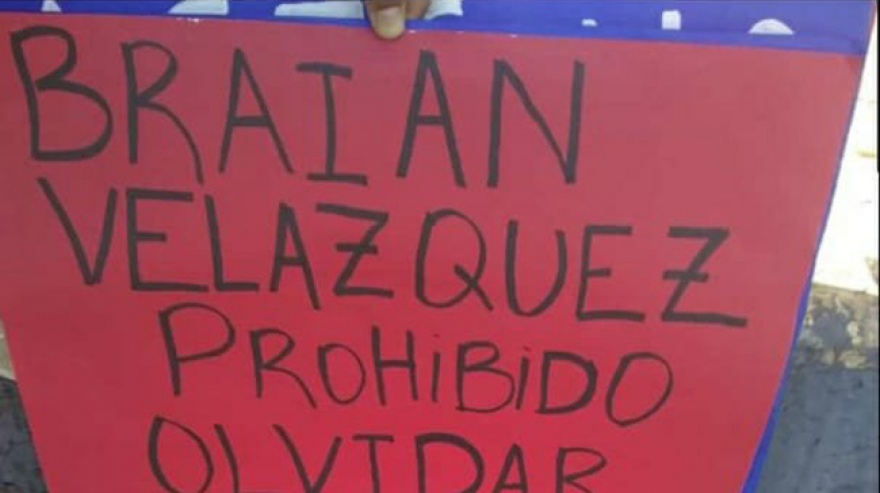 BRAIAN
VELAZQUEZ
PROHiBiDO
OLVIDAR